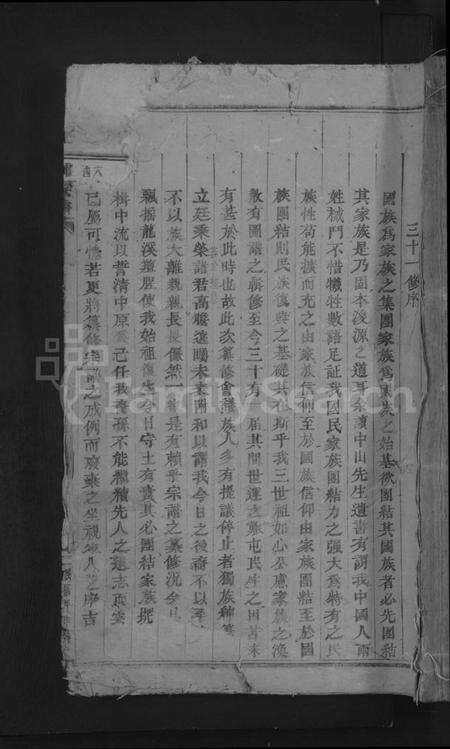 三十一修序
國族爲家族之集團家族爲國族之始基欲團結其國族者必先團結
其家族是乃固本浚源之道耳余讀中山先生遺書有謂我中國人兩
姓械鬥不惜犧牲數語足証我國民家族團結力之强大爲特有之民
族性苟能擴而充之由家族信仰至於國族信仰由家族團結至於國
族團結則民族復興之基礎其在斯乎我三世祖如心公慮家族之渙
散有圖譜之輯修至今三十有一屆其間世運之艱屯民生之困苦未
有甚於此時也故此次纂修會議族人多有提議停止者獨族紳
立廷乘榮諸君高瞻遠矚未表附和以謂我今日之後裔不以
不以族大離親親長長儼然一體是有賴乎宗譜之纂修況今日
飄搖龍溪 腥使我始祖復生今日守土有責其必團結家族
楫中流以誓清中原爲己任我裔孫不能繼續先人之遺志
已屬可愧若更將纂修宗譜之成例而廢棄之坐視
FamilySearch